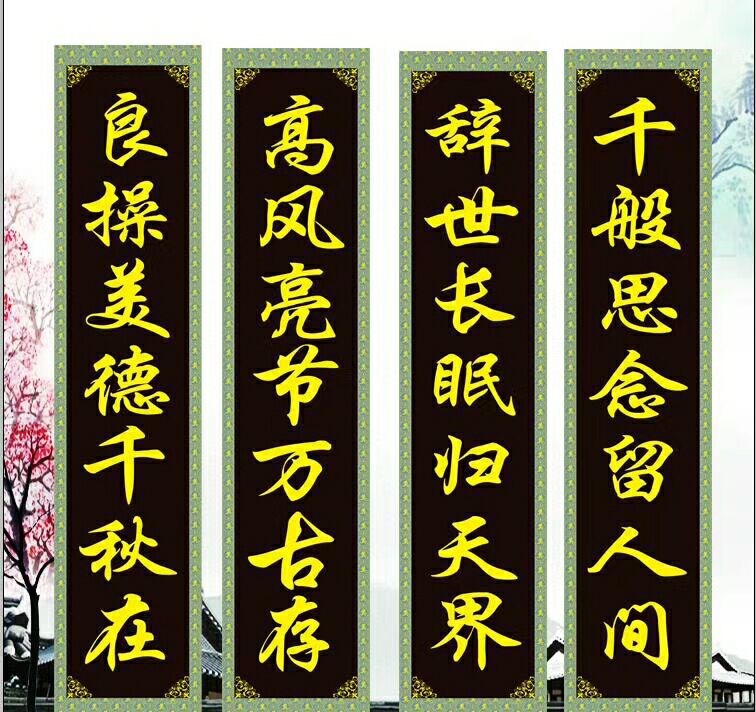 良操美德千秋在
高风亮节万古存
辞世长眠归天界
千般思念留人间